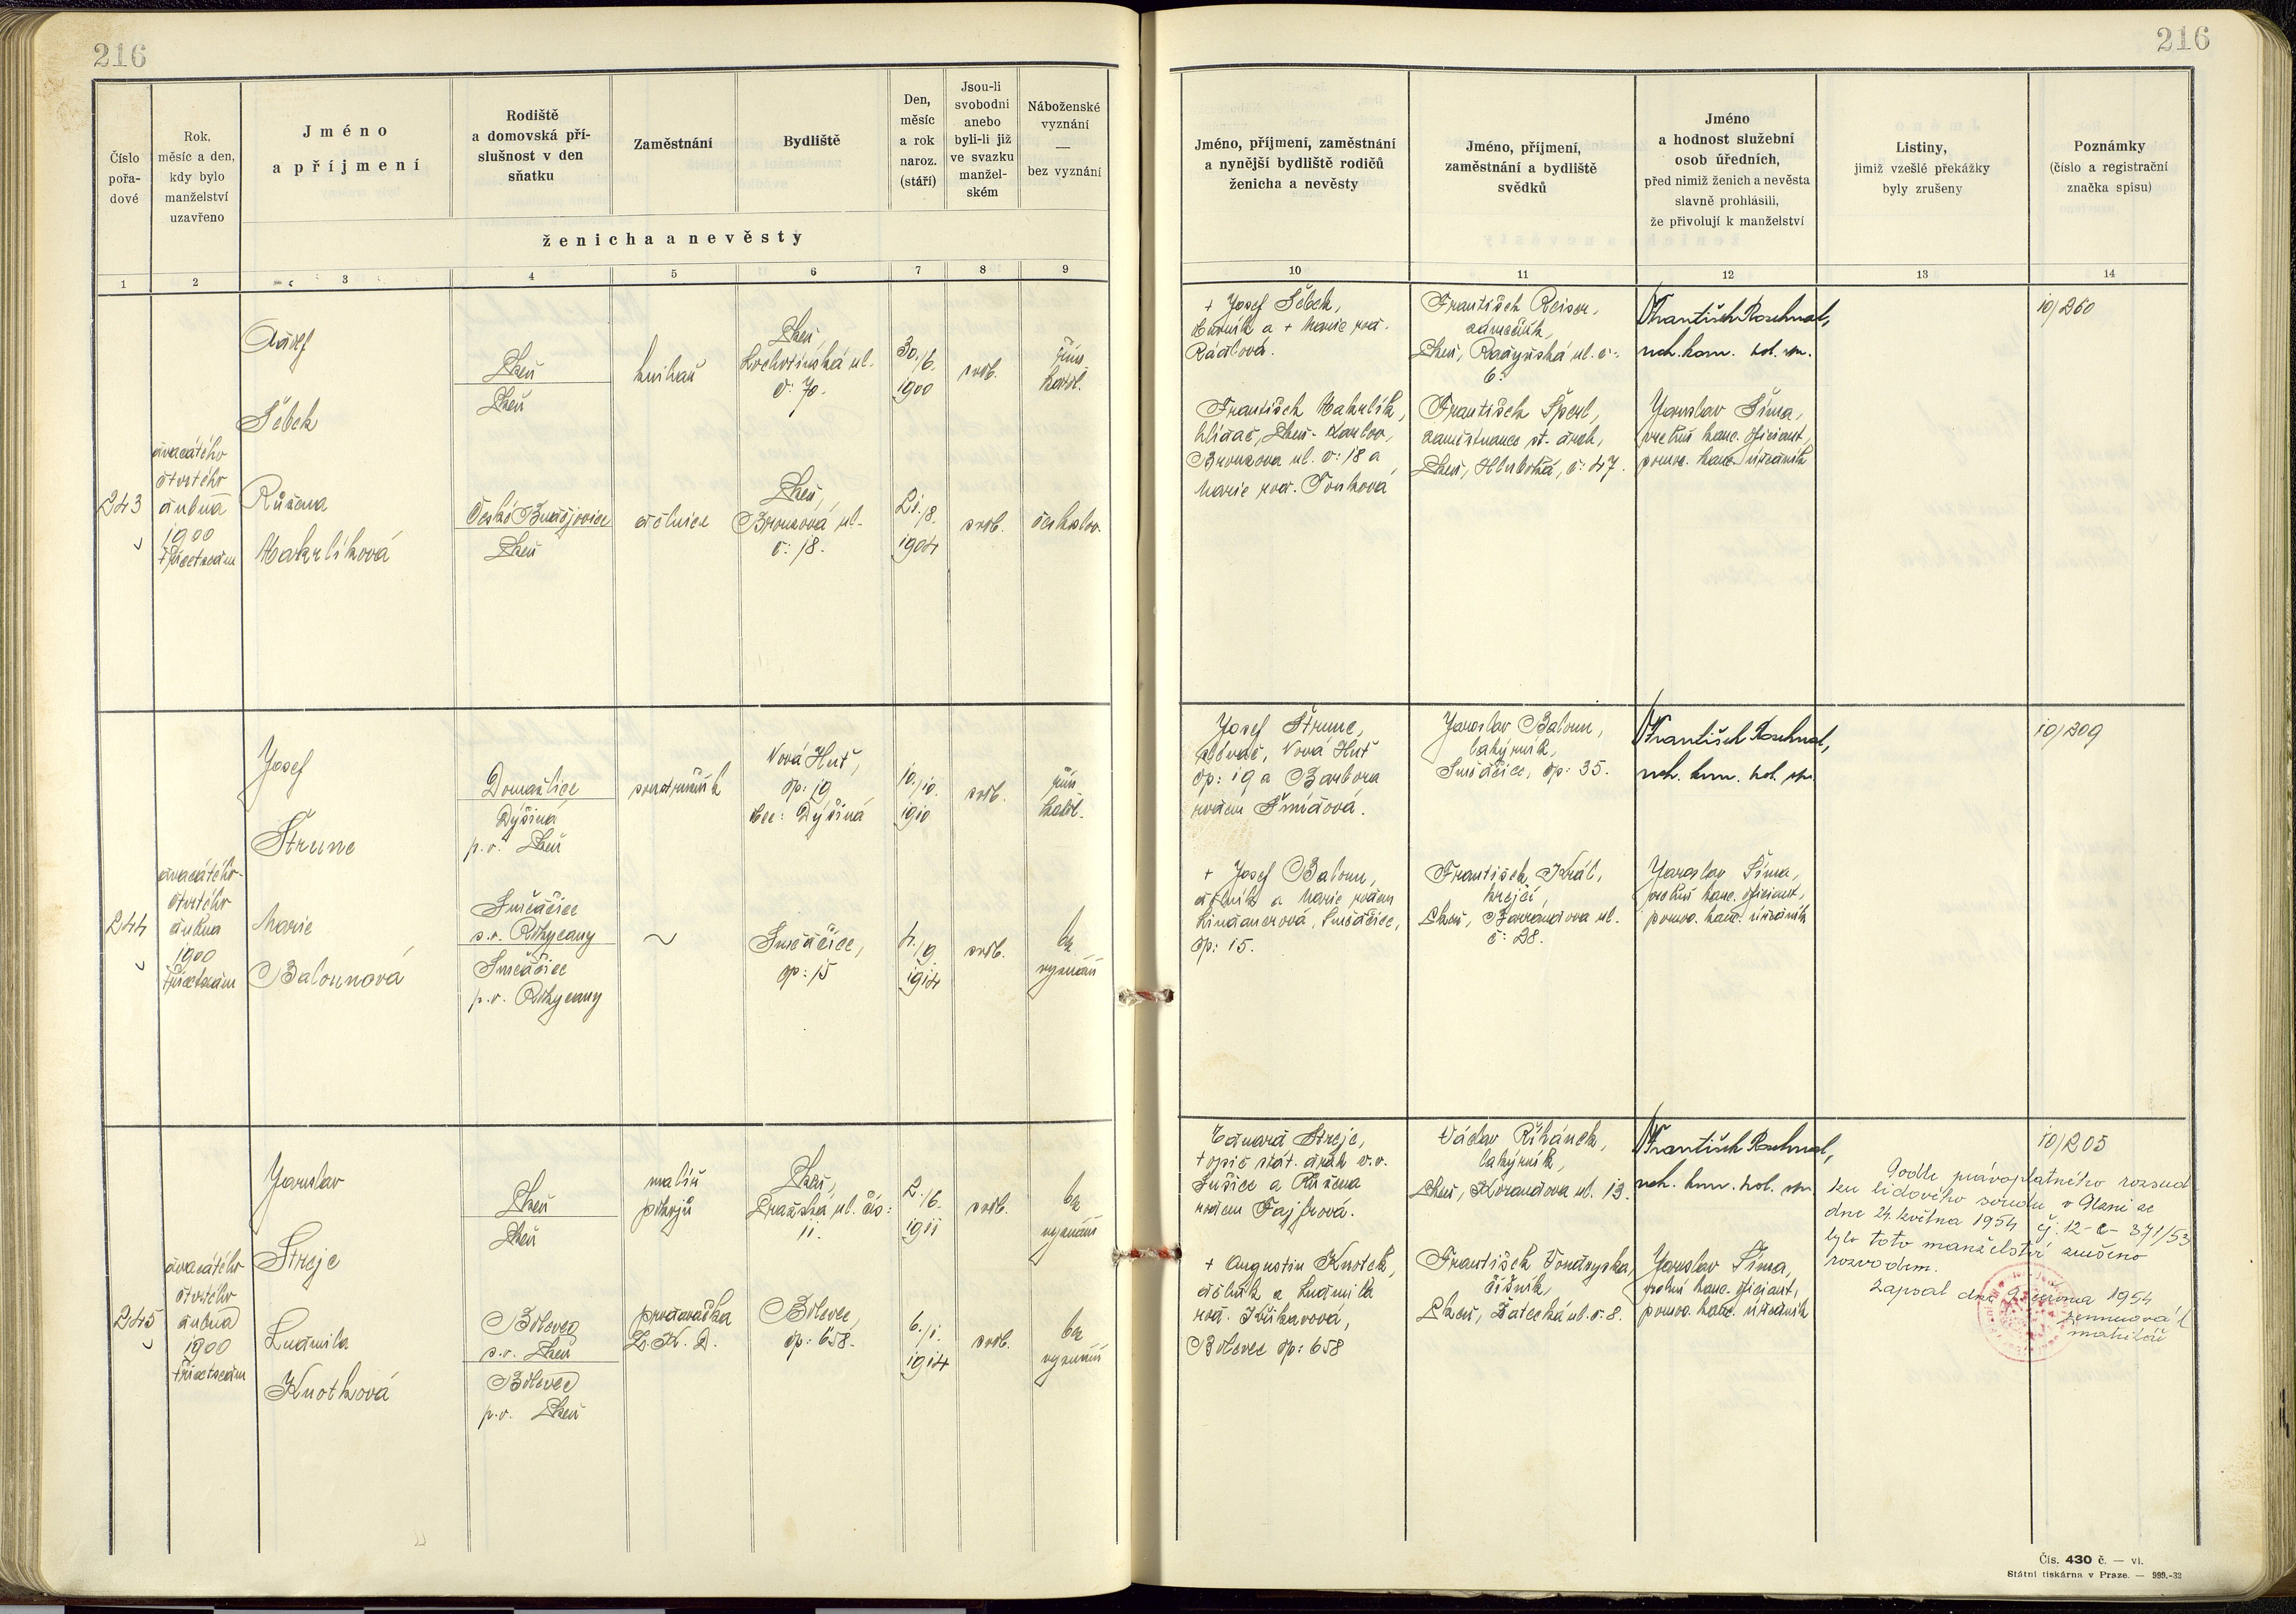 216
216
Číslo
pořa-
dové
Rok,
měsíc a den,
kdy bylo
manželství
uzavřeno
Jméno
a příjmení
Rodiště
a domovská pří-
slušnost v den
sňatku
Zaměstnání
Bydliště
Den,
měsíc
a rok
naroz.
(stáří)
Jsou-li
svobodni
anebo
byli-li již
ve svazku
manžel-
ském
Náboženské
vyznání
—
bez vyznání
ženicha a nevěsty
Jméno, příjmení, zaměstnání
a nynější bydliště rodičů
ženicha a nevěsty
Jméno, příjmení,
zaměstnání a bydliště
svědků
Jméno
a hodnost služební
osob úředních,
před nimiž ženich a nevěsta
slavně prohlásili,
že přivolují k manželství
Listiny,
jimiž vzešlé překážky
byly zrušeny
Poznámky
(číslo a registrační
značka spisu)
1 2 3 4 5 6 7 8 9 10 11 12 13 14
243
dvacátého
čtvrtého
dubna
1900
třicetsedm
Adolf
Šebek
Plzeň
Plzeň
knihař
Plzeň,
Lochotínská ul.
č: 70.
30./6.
1900
svob.
řím.
katol.
Růžena
Makrlíková
České Budějovice
Plzeň
dělnice
Plzeň,
Brousova ul.
č: 18.
21./8.
1904
svob.
českoslov.
+ Josef Šebek,
a + Marie roz.
Rádlová.
František Makrlík,
hlídač, Plzeň-Karlov,
Brousova ul. č: 18 a
Marie roz.
František Reiser,
zámečník,
Plzeň, Radyňská ul. č:
6.
František Šperl,
zaměstnanec st. drah,
Plzeň, Hluboká, č: 47.
František
Jaroslav Šíma,
kanc. oficiant,
pomoc. kanc. úředník
10/260
244
dvacátého
čtvrtého
dubna
1900
třicetsedm
Josef
Štrunc
Domažlice
Dýšina
p.o. Plzeň
soustružník
Nová Huť,
čp: 19
obec: Dýšina
10./10.
1910
svob.
řím.
katol.
Marie
Balounová
Smědčice
s.o. Rokycany
Smědčice
p.o. Rokycany
~
Smědčice,
čp: 15
4./9.
1914
svob.
bez
vyznání
Josef Štrunc,
Nová Huť
čp: 19 a Barbora
rodem Šmídová.
+ Josef Baloun,
dělník a Marie rodem
Lindauerová, Smědčice,
čp: 15.
Jaroslav Baloun,
lakýrník,
Smědčice, čp: 35.
František Král,
krejčí,
Plzeň, Barrandova ul.
č: 28.
František
Jaroslav Šíma,
kanc. oficiant,
pomoc. kanc. úředník
10/209
245
dvacátého
čtvrtého
dubna
1900
třicetsedm
Jaroslav
Streje
Plzeň
Plzeň
malíř
pokojů
Plzeň,
Pražská ul. čís:
11.
2./6.
1911
svob.
bez
vyznání
Ludmila
Knotková
Bolevec
s.o. Plzeň
Bolevec
p.o. Plzeň
prodavačka
Z. K. D.
Bolevec,
čp: 658.
6./1.
1914
svob.
bez
vyznání
Eduard Streje,
topič stát. drah v.v.
Sušice a Růžena
rodem Fajfrová.
+ Augustin Knotek,
dělník a Ludmila
roz.
Bolevec čp: 658
Václav Řihánek,
lakýrník,
Plzeň, Korandova ul. 13.
František Vondryska,
číšník,
Plzeň, Žatecká ul. č: 8.
František
Jaroslav Šíma,
kanc. oficiant,
pomoc. kanc. úředník
10/205
Podle právoplatného rozsud
ku lidového soudu v Plzni ze
dne 24. května 1954 čj. 12-C-371/53
bylo toto manželství zrušeno
rozvodem.
Zapsal dne 9. června 1954
matrikář
Čís. 430 č. — vl.
Státní tiskárna v Praze. — 999.-32